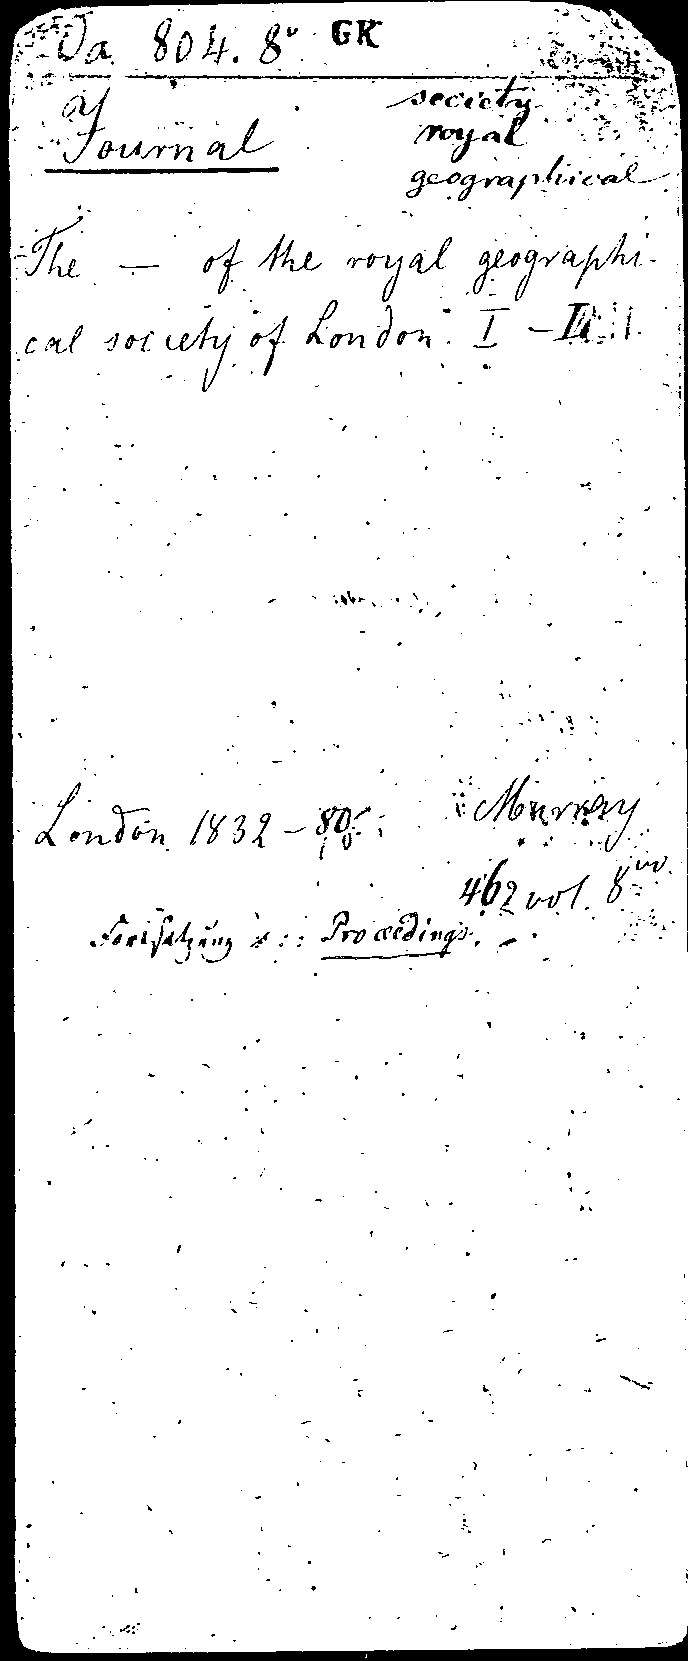 Da 804. 8° GK
a)
Journal
society
royal
geographical
The — of the royal geographi-
cal society of London. I –
London 1832 – 80
Murray
vol. 8vo
Fortsetzung s: Proceedings.